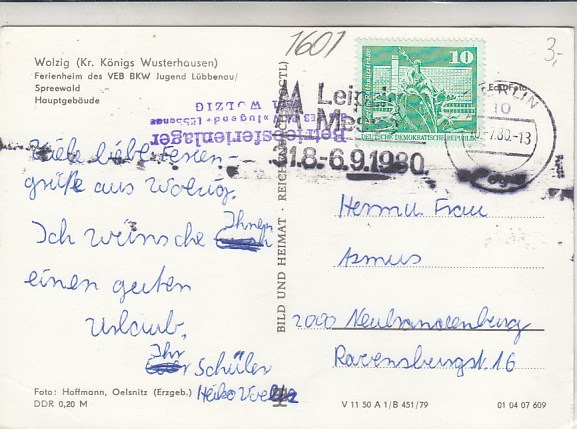 1601
3,-
Wolzig (Kr. Königs Wusterhausen)
Ferienheim des VEB BKW Jugend Lübbenau/
Spreewald
Hauptgebäude
10
DEUTSCHE DEMOKRATISCHE REPUBLIK
MM Leipziger
Messe
31.8.-6.9.1980.
BERLIN
10
.7.80.-13
Betriebsferienlager
des BKW Jugend - Lübbenau
in WOLZIG
Viele liebe Ferien-
grüße aus Wolzig.
Ich wünsche Ihnen
einen guten
Urlaub.
Ihr Schüler
Heiko
BILD UND HEIMAT · REICHENBACH (VOGTL)
Herrn u. Frau
Asmus
2000 Neubrandenburg
Ravensburgst. 16
Foto: Hoffmann, Oelsnitz (Erzgeb.)
DDR 0,20 M
V 11 50 A 1/B 451/79
01 04 07 609